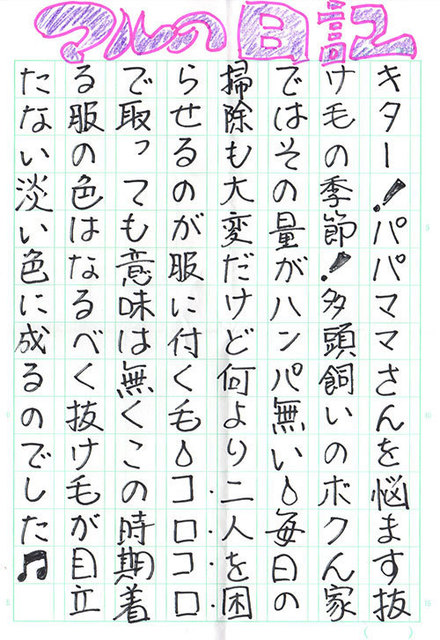 マルの日記
キター！パパママさんを悩ます抜
け毛の季節！多頭飼いのボクん家
ではその量がハンパ無い💧毎日の
掃除も大変だけど何より二人を困
らせるのが服に付く毛💧コロコロ
で取っても意味は無くこの時期着
る服の色はなるべく抜け毛が目立
たない淡い色に成るのでした♫